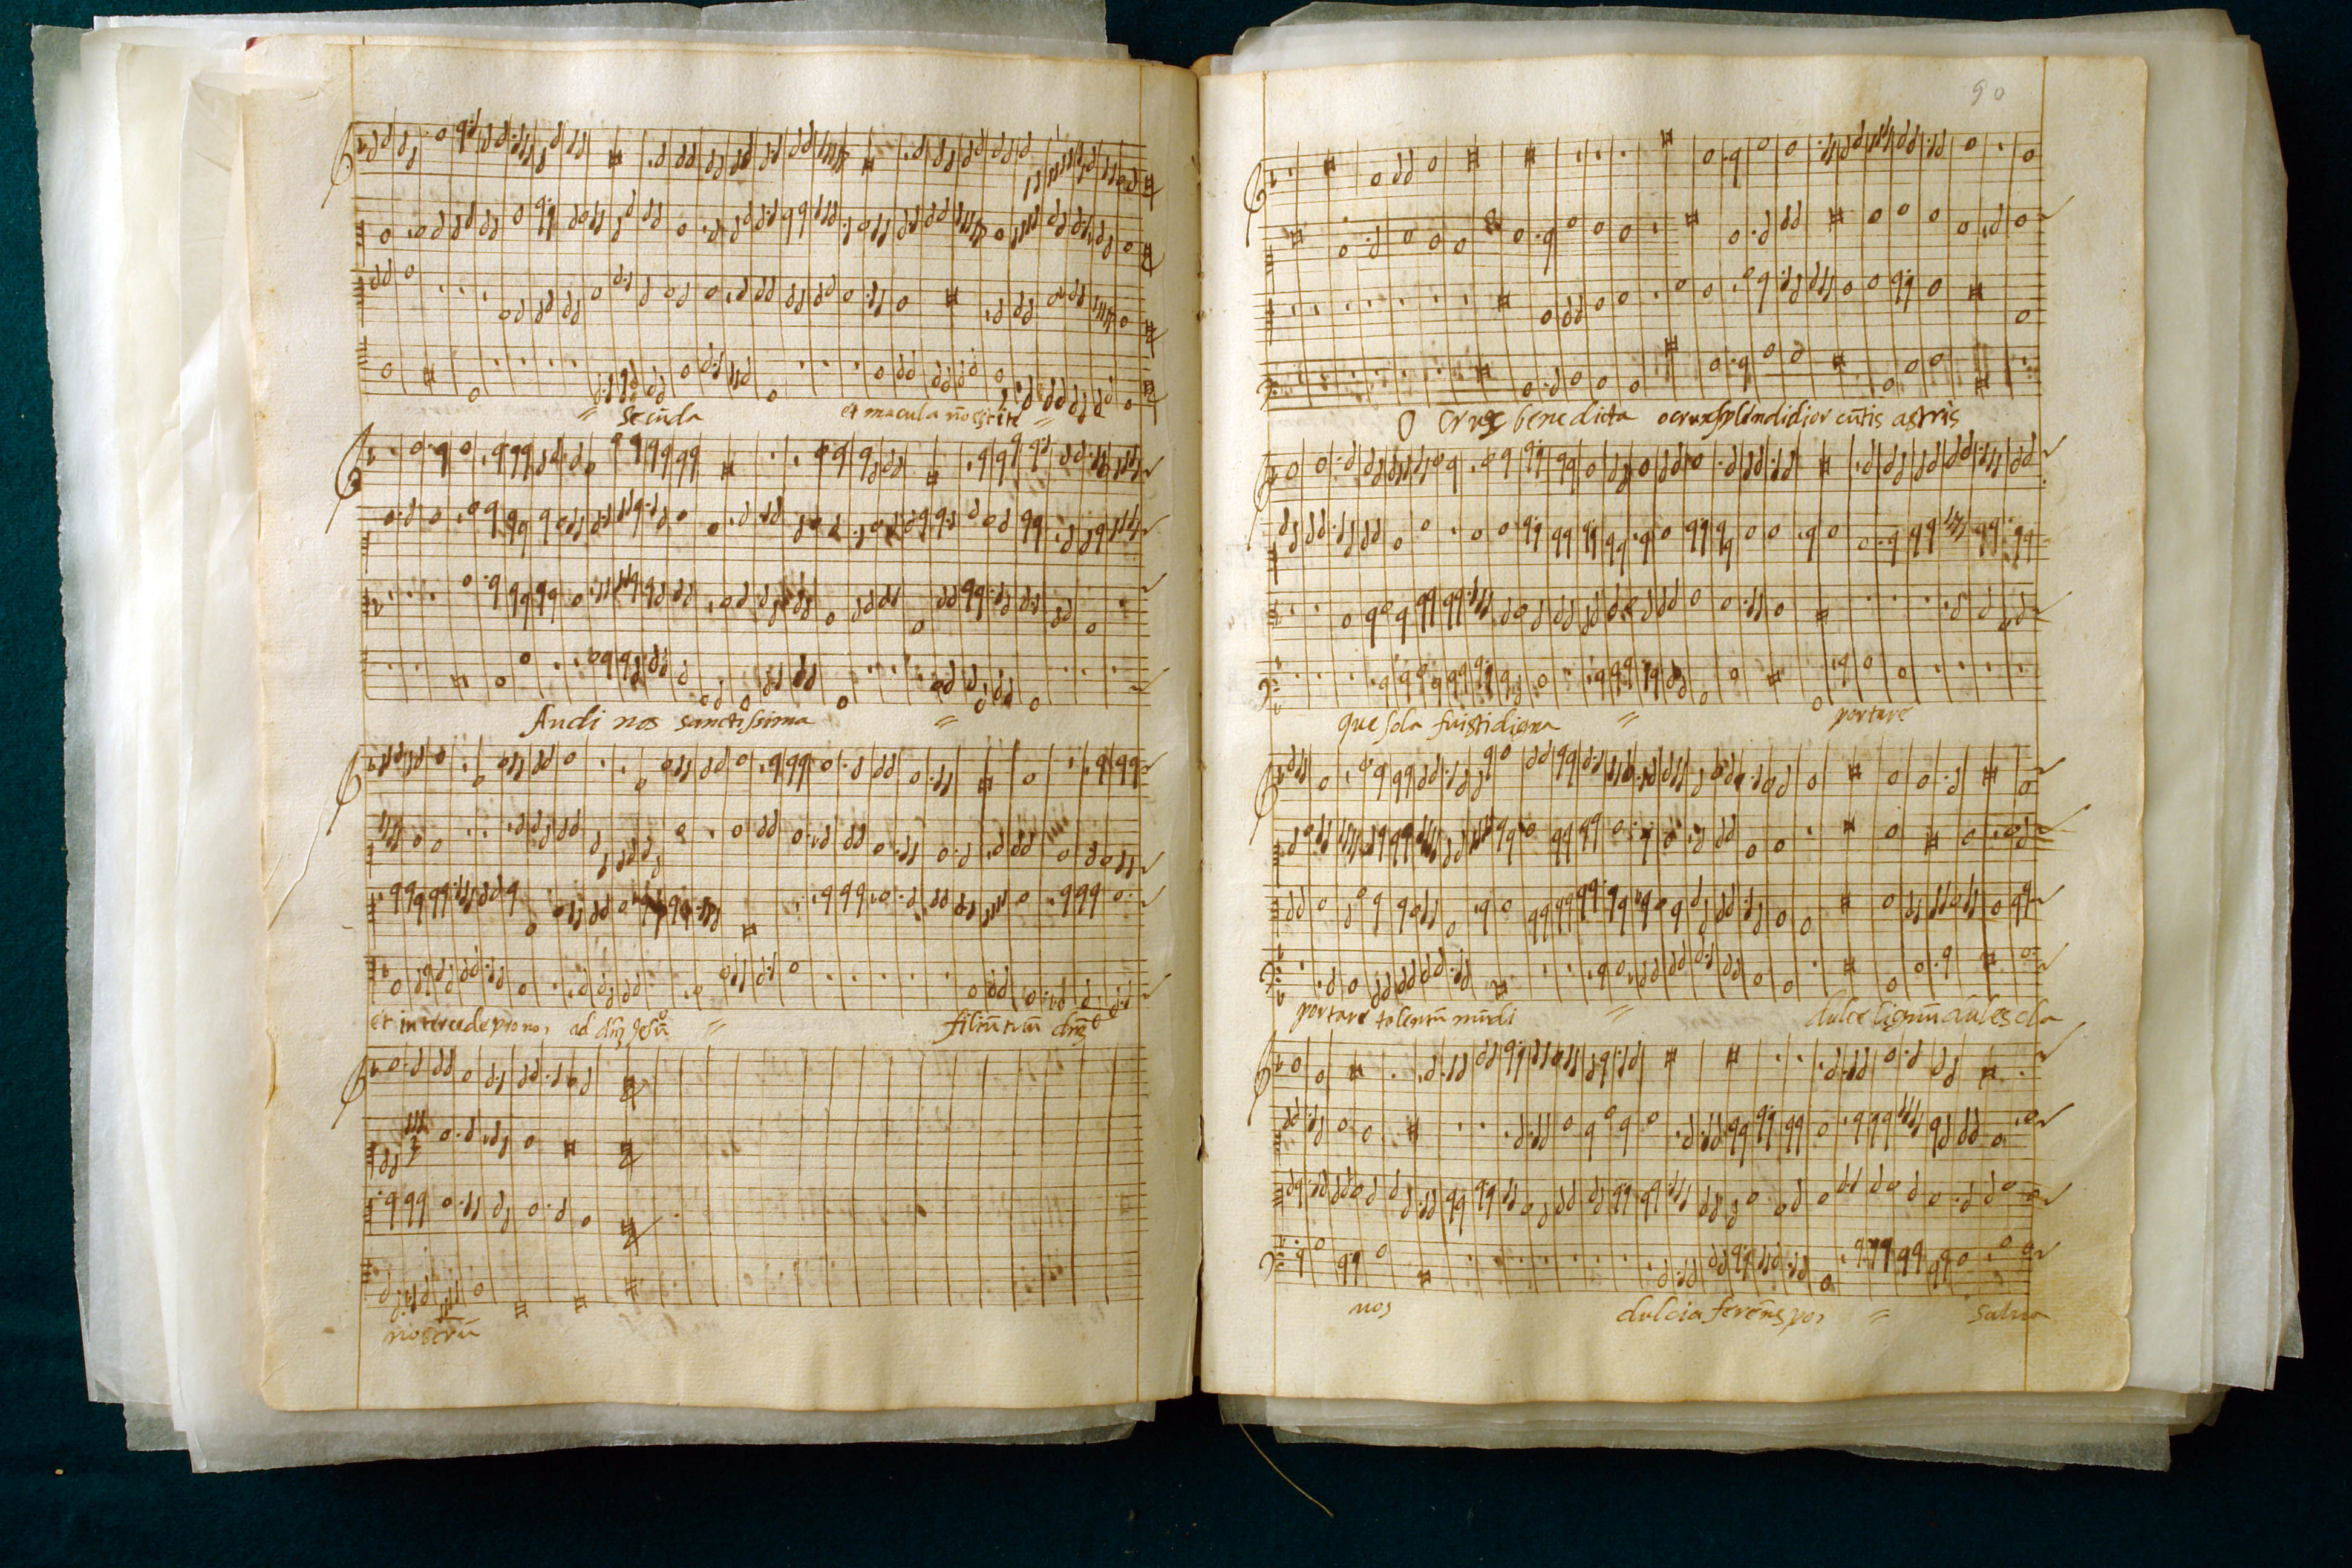 = Secūda et macula nō est ī te =
Audi nos sanctissima =
et intercede pro nos ad dn̄ʒ Jesū = filiū tuū dn̄ʒ
nostrū
90
O crux benedicta o crux splendidior cūtis astris
que sola fuisti digna = portare
portare talentū mūdi = dulce lignū dulces cla
nos dulcia ferens pon = salua